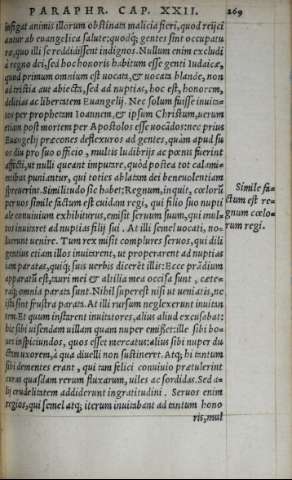 PARAPHR. CAP. XXII.
269
instigat animis illorum obstinatā malicia fieri, quod reijci
antur ab euangelica salute: quodq́; gentes sint occupatu
ræ, quo illi se reddidissent indignos. Nullum enim excludi
à regno dei, sed hoc honoris habitum esse genti Iudaicæ,
quòd primum omnium est uocata, & uocata blandè, non
ad tristia aut abiecta, sed ad nuptias, hoc est, honorem,
delitias ac libertatem Euangelij. Nec solum fuisse inuita-
tos per prophetam Ioannem, & ipsum Christum, uerum
etiam post mortem per Apostolos esse uocādos: nec prius
Euangelij præcones deflexuros ad gentes, quàm apud su
os diu pro suo officio, multis ludibrijs ac pœnis fuerint
affecti, ut nulli queant imputare, quòd postea tot calami-
tatibus puniantur, qui toties ablatam dei beneuolentiam
spreuerint. Similitudo sic habet: Regnum, inquit, cœlorū
per uos simile factum est cuidam regi, qui filio suo nupti
ale conuiuium exhibiturus, emisit seruum suum, qui mul-
tos inuitaret ad nuptias filij sui. At illi semel uocati, no-
luerunt uenire. Tum rex misit complures seruos, qui dili
gentius etiam illos inuitarent, ut properarent ad nuptias
iam paratas, quiq́; suis uerbis dicerēt illis: Ecce prādium
apparatū est, tauri mei & altilia mea occisa sunt, cæte-
raq́; omnia parata sunt. Nihil superest nisi ut ueniatis, ne
ista sint frustra parata. At illi rursum neglexerunt inuitan
tem. Et quum instarent inuitatores, alius aliud excusabat:
hic sibi uisendam uillam quam nuper emisset: ille sibi bo-
ues inspiciundos, quos esset mercatus: alius sibi nuper du
ctam uxorem, à qua diuelli non sustineret. Atq; hi tantum
sibi dementes erant, qui tam felici conuiuio prætulerint
curas quasdam rerum fluxarum, uiles ac sordidas. Sed a-
lij crudelitatem addiderunt ingratitudini. Seruos enim
regios, qui semel atq; iterum inuitabant ad tantum hono
ris, mul
Simile fa-
ctum est re-
gnum cœlo-
rum regi.